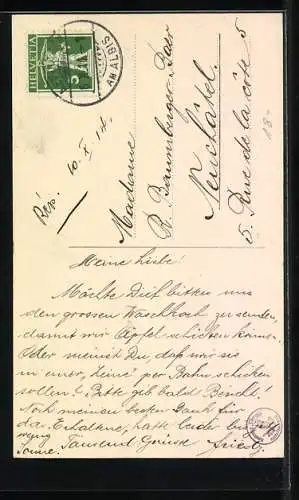 HELVETIA
AM ALBIS
Rép. 10. X. 14.
Madame
R. Baumberger-Baur
Neuchâtel.
5, Rue de la côte 5
18-
Meine Liebe!
Möchte Dich bitten uns
den grossen Waschkoch zu senden,
damit wir Äpfel schicken können.
Oder meinst Du, dass wir sie
in einer Zeine per Bahn schicken
sollen? Bitte geb bald Bericht!
Noch meinen besten Dank für
das Erhaltene, hatte leider
wenig Sonne. Tausend Grüsse